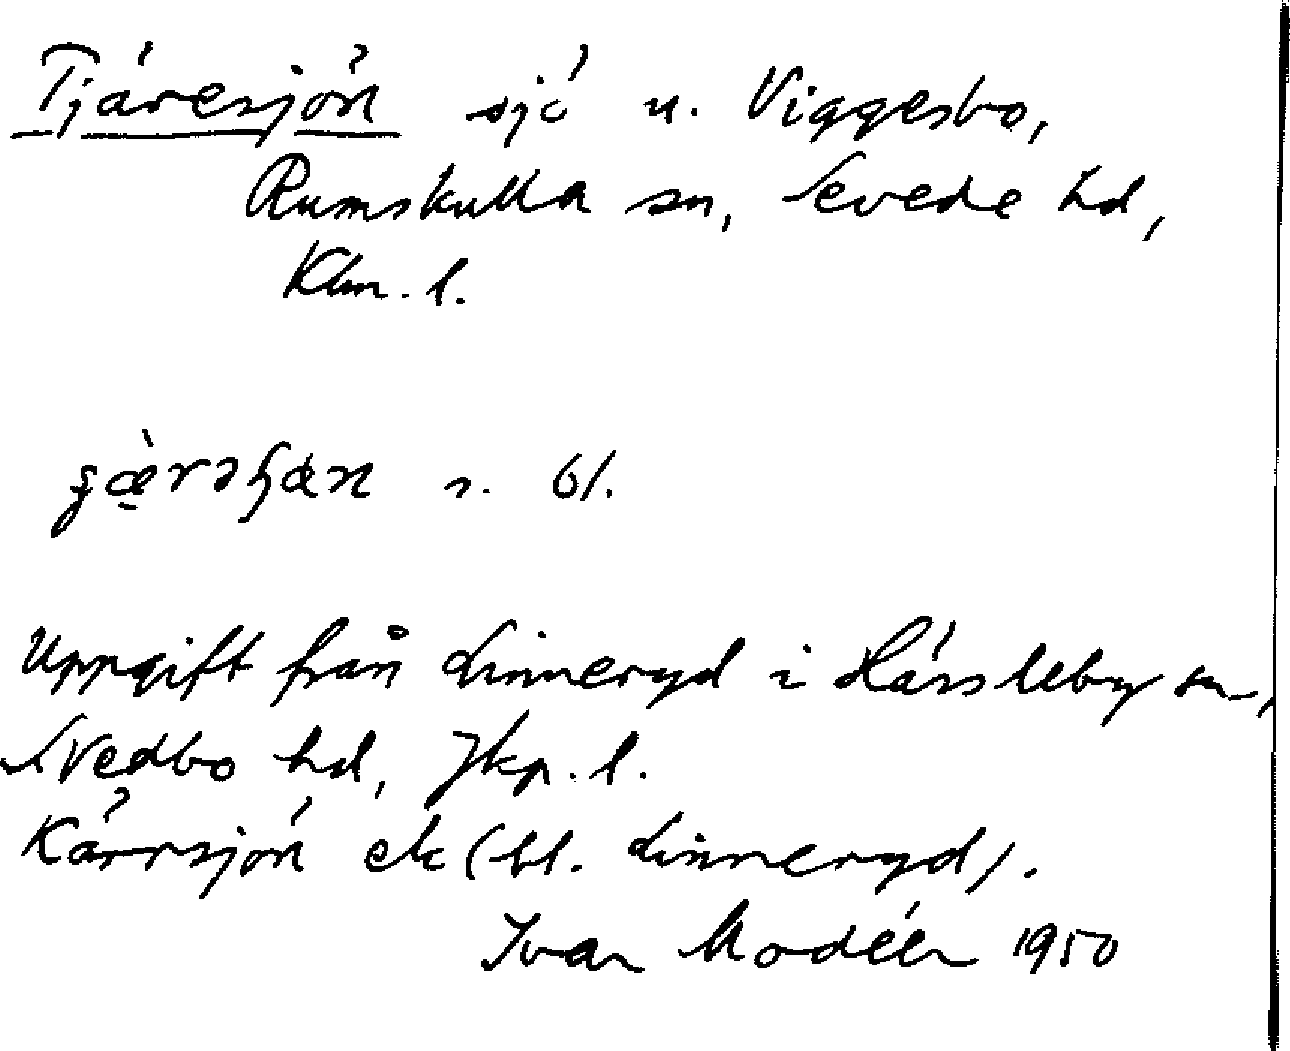 Tjäresjön sjö u. Viggesbo,
Rumskulla sn, Sevede hd,
Klm. l.
s. 61.
Uppgift från Linneryd i Hässleby sn,
Svedbo hd, Jkp. l.
Kärrsjön ek (bl. Linneryd).
Ivar Modéer 1950